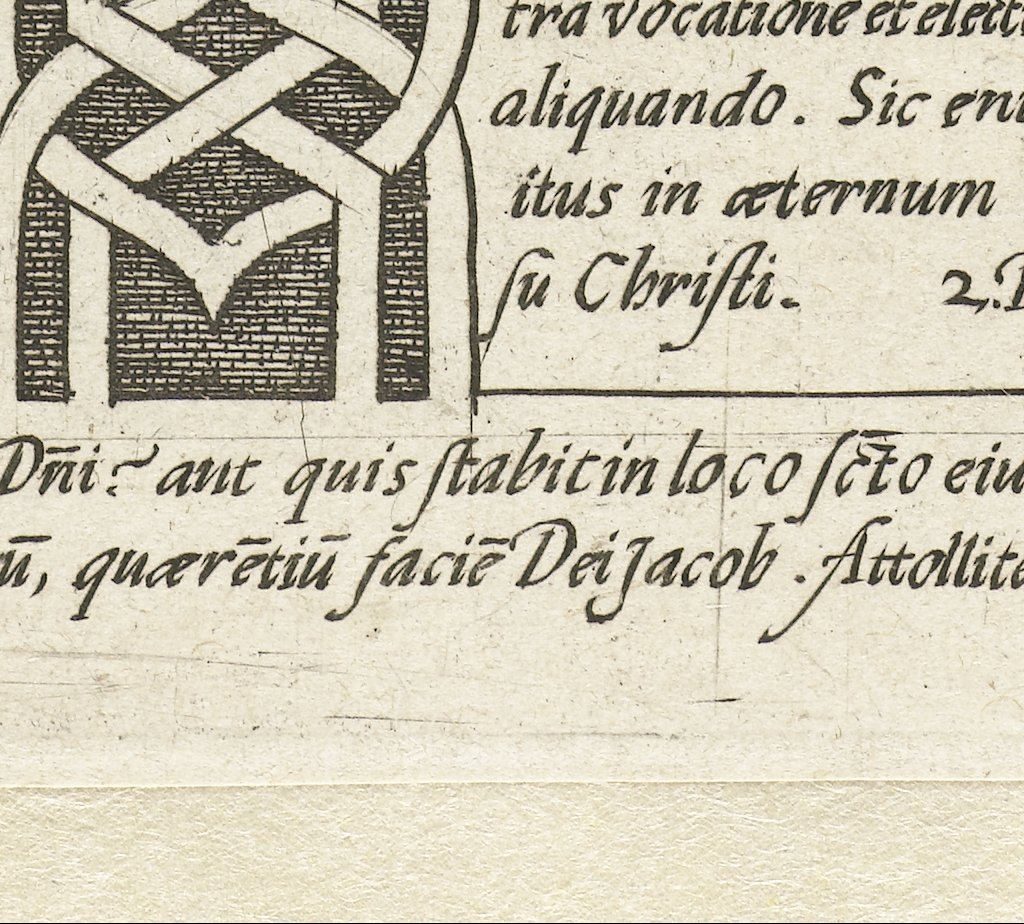 tra vocatione et elect
aliquando. Sic en
itus in æternum
ſu Chriſti. 2.P
Dn̄i? aut quis ſtabit in loco ſc̄to eiu
ū, quærētiū faciē Dei Jacob. Attollite